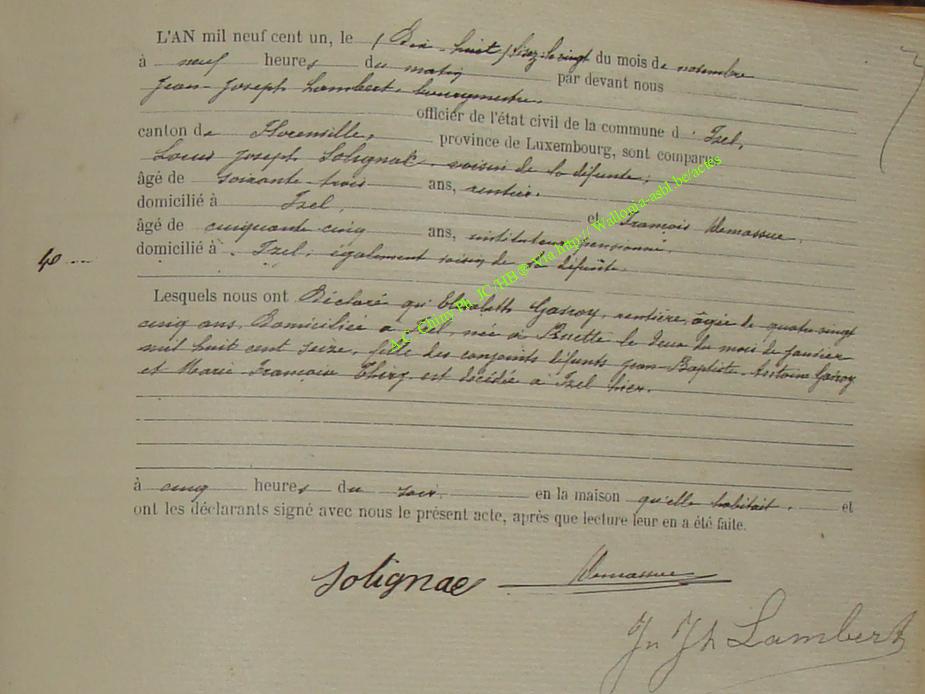 L'AN mil neuf cent un, le (Dix-huit) du mois de novembre
à neuf heures du matin par devant nous
Jean-Joseph Lambert, bourgmestre,
officier de l'état civil de la commune d'Izel,
canton de Florenville, province de Luxembourg, sont comparus
Louis Joseph Solignac, voisin de la défunte;
âgé de soixante-trois ans, rentier.
domicilié à Izel, et François
âgé de cinquante cinq ans, instituteur pensionné
domicilié à Izel, également voisin de la défunte.
40
Lesquels nous ont Déclaré qu'Elisabeth Gavroy, rentière, âgée de quatre-vingt
cinq ans, Domiciliée à Izel, née à le Deux du mois de janvier
mil huit cent seize, fille des conjoints défunts Jean-Baptiste-Antoine Gavroy
et Marie Françoise est décédée à Izel hier.
à cinq heures du soir en la maison qu'elle habitait. et
ont les déclarants signé avec nous le présent acte, après que lecture leur en a été faite.
Solignac
Jn Jh Lambert
A.C Chiny Ph. JC/HB@ Via http// Wallonia-asbl.be/actes